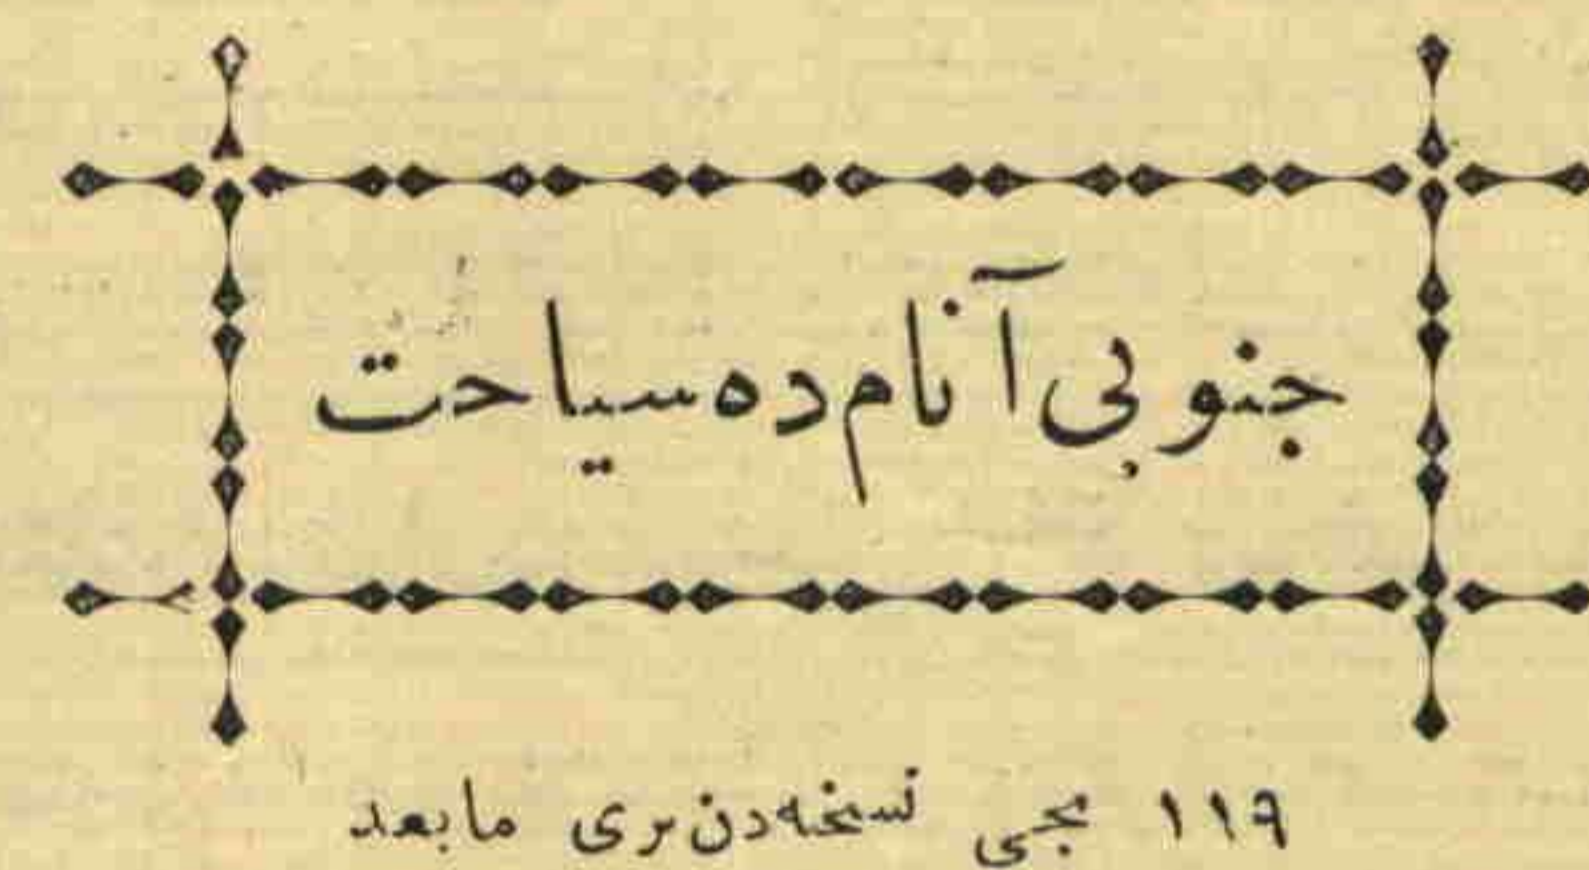 جنوبی آنام ده سیاحت
١١٩ نجی نسخه‌دن بری مابعد